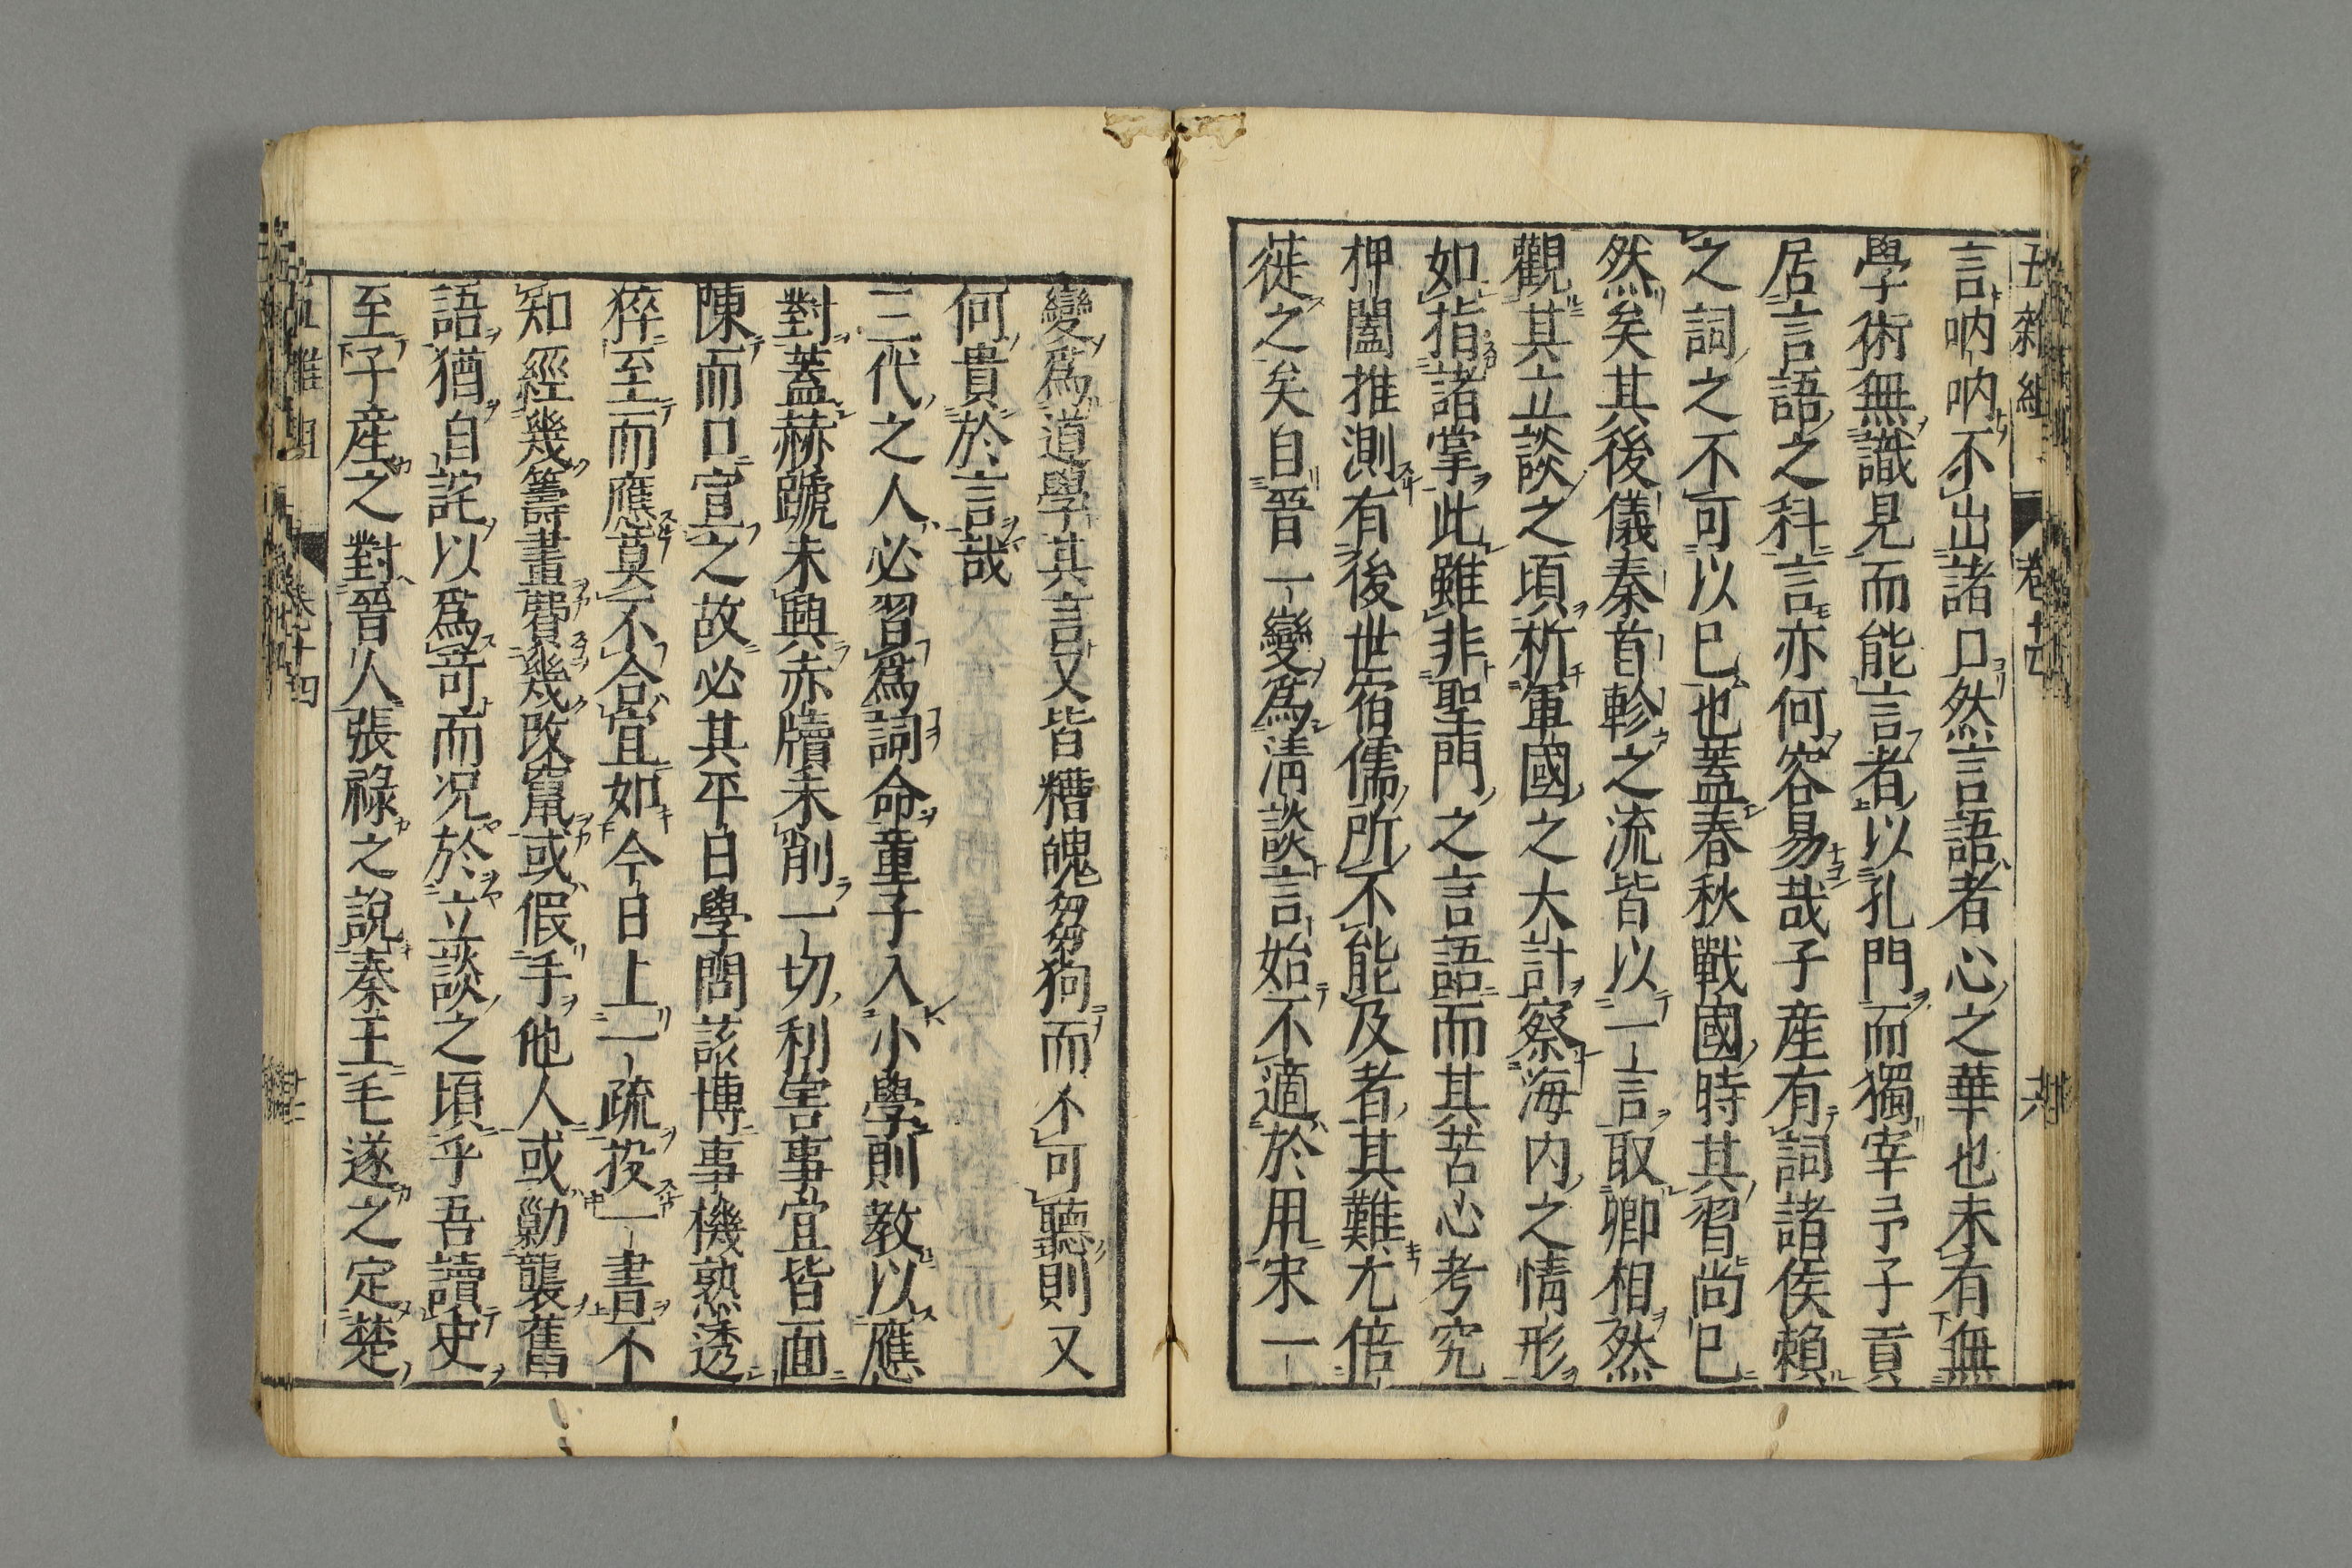 五雜組 卷十四
言吶吶不出諸口然言語者心之華也未有無
學術無識見而能言者以孔門而獨宰予子貢
居言語之科言亦何容易哉子產有詞諸侯賴
之詞之不可以已也蓋春秋戰國時其習尚已
然矣其後儀秦首軫之流皆以一言取卿相然
觀其立談之頃析軍國之大計察海内之情形
如指諸掌此雖非聖門之言語而其苦心考究
押闔推測有後世宿儒所不能及者其難尤倍
徙之矣自晉一變爲清談言始不適於用宋一
變爲道學其言又皆糟魄芻狗而不可聽則又
何貴於言哉
三代之人必習爲詞命童子入小學則教以應
對蓋赫蹏未興赤牘未削一切利害事宜皆面
陳而口宣之故必其平日學問該博事機熟透
猝至而應莫不合宜如今日上一疏投一書不
知經幾籌畫費幾改竄或假手他人或勦襲舊
語猶自詫以爲奇而况於立談之頃乎吾讀史
至子產之對晉人張祿之說秦王毛遂之定楚
卷十四